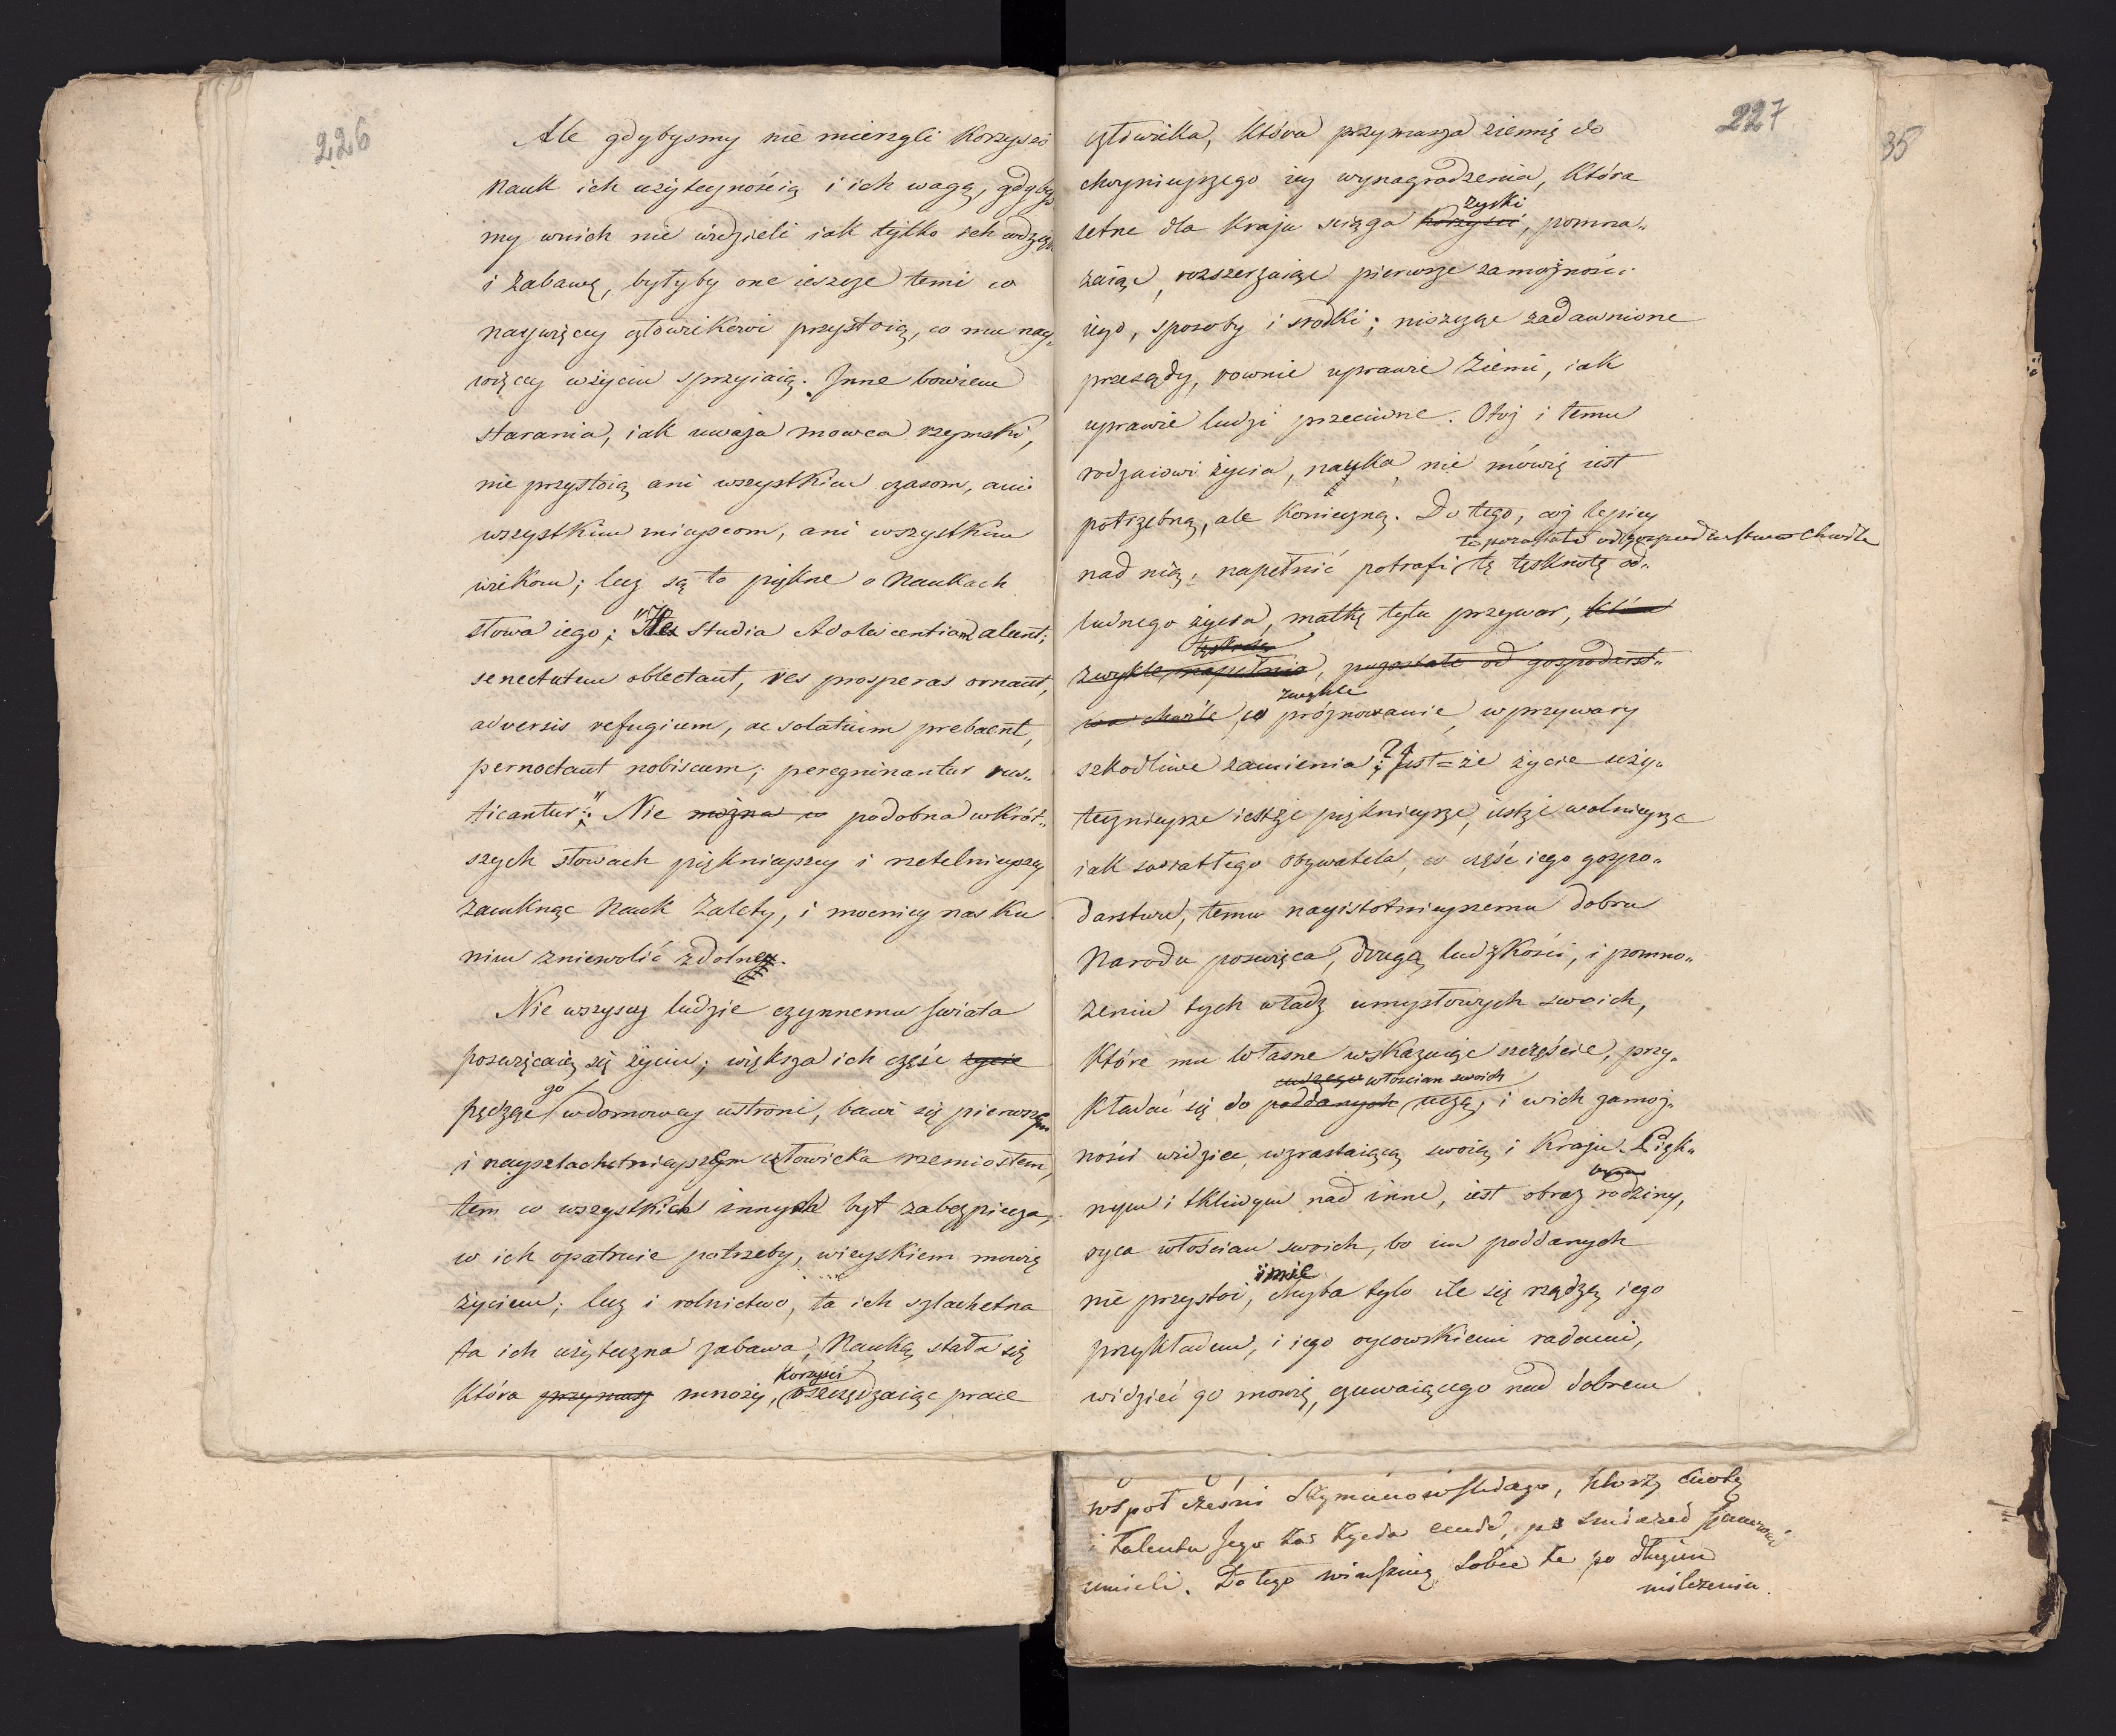 226
Ale gdybysmy nie mierzyli Korzysci
Nauk ich użytecznością i ich wagą, gdyby„
my wnich nie widzieli iak tylko ich wdzięk
i zabawę, byłyby one ieszcze temi co
naywięcey człowiekowi przystoią, co mu nay„
więcey wżyciu sprzyiaią. Inne bowiem
starania, iak uważa mowca rzymski,
nie przystoią ani wszystkim czasom, ani
wszystkim mieyscom, ani wszystkim
wiekom; lecz są to piękne o Naukach
słowa iego: "Hes studia Adolescentiam alunt;
senectutem oblectant, res prosperas ornant,
adversis refugium, ac solatium prebaent,
pernoctant nobiscum; peregrinantur rus„
ticantur:" Nie można w podobna wkrót„
szych słowach pięknieyszey i rzetelnieyszey
zamknąc Nauk Zalety, i mocniey nas ku
nim zniewolić zdolney.
Nie wszyscy ludzie czynnemu świata
poswięcaią się życiu; większa ich częśc życie
go
pędząc wdomowey ustroni, bawi się pierwszym
i nayszlachetnieyszem człowieka rzemiosłem,
tem co wszystkich innych byt zabezpiecza,
co ich opatruie potrzeby, wieyskiem mowię
życiem; lecz i rolnictwo, ta ich szlachetna
ta ich użyteczna zabawa, Nauką stała się
Korzyści
Która przymusz mnoży, oszczędzaiąc prace
227
35
człowieka, Która przymusza ziemię do
chwynieyszego iey wynagrodzenia, Która
zyski
setne dla Kraju sciąga korzyści, pomna„
żaiąc, rozszerzaiąc pierwsze zamożności
iego, sposoby i srodki; niszcząc zadawnione
przesądy, rownie uprawie Ziemi, iak
uprawie ludzi przeciwne. Otoż i temu
rodzaiowi życia, nauka, nie mówię iest
potrzebną, ale Konieczną. Do tego, coż lepiey
te pozostałe od gospodarstwa chwile
nad nią, napełnić potrafi, tę tęsknotę od„
ludnego życia, matkę tylu przywar, która
tęsknotą
zwykle napełnia, pozostałe od gospodarst„
zwykle
wa chwile, co próżnowanie w przywary
szkodliwe zamienia;? Jest=że życie uży„
tecznieysze iestże pięknieysze, iestże wolnieysze
iak swiatłego Obywatela, co część iego gospo„
darstwu, temu nayistotnieyszemu dobru
Narodu poswięca, drugą ludzkości, i pomno„
żeniu tych władz umysłowych swoich,
Które mu własne wskazuiąc szczęście, przy„
cudzego włoscian swoich
Kładać się do poddanych uczą, i wich zamoż„
ności widziec wzrastaiącą swoią i Kraju. Pięk„
nym i tkliwym nad inne, iest obraz rodziny,
oyca włościan swoich, bo im poddanych
imie
nie przystoi, chyba tylo ile się rządzą iego
przykładem, i iego oycowskiemi radami,
widzieć go mowię, czuwaiącego nad dobrem
wspołcześni Szymanowskiego, Którzy Cnotę
i talenta Jego
umieli. Do tego winszuię Sobie że po długim
milczeniu.